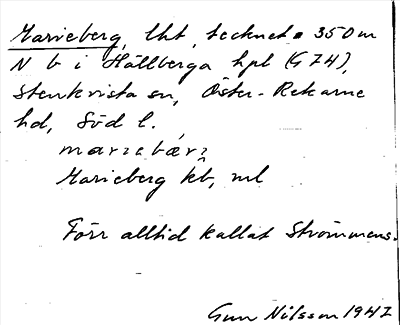 Marieberg, lht, tecknet 350 m
N b i Hällberga hpl (G 74),
Stenkvista sn, Öster-Rekarne
hd, Söd l.
Marieberg kb, ml
Förr alltid kallat Strömmens.
Gun Nilsson 1947